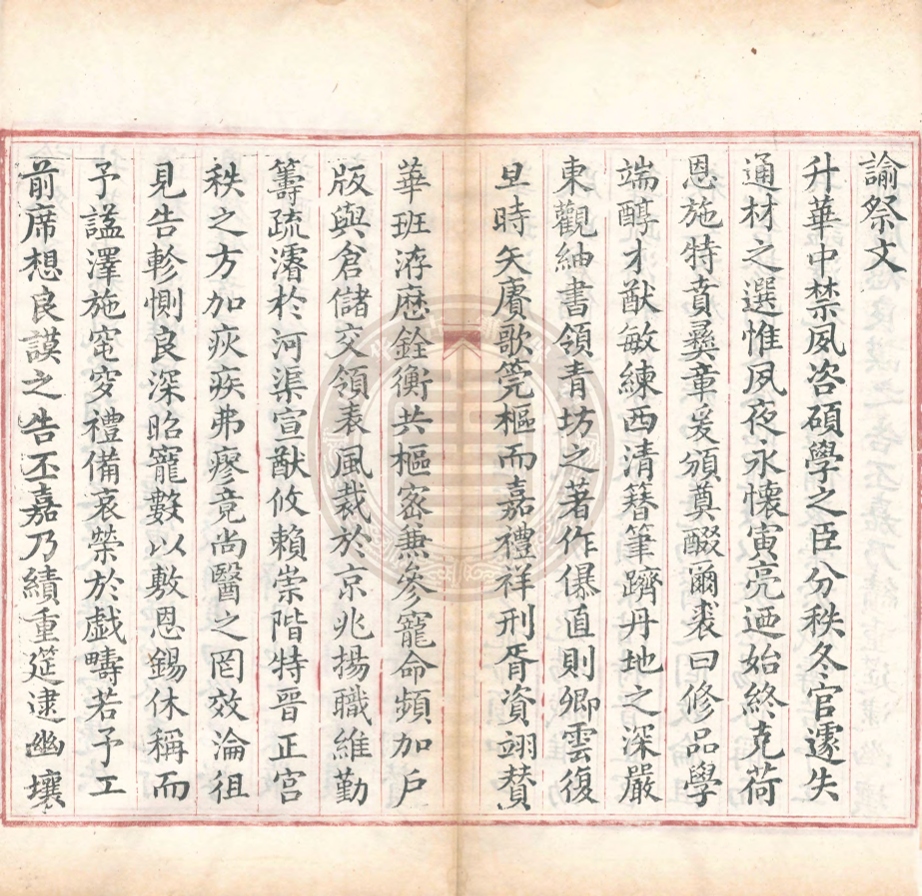 諭祭文
升華中禁夙咨碩學之臣分秩冬官遽失
通材之選惟夙夜永懷寅亮迺始終克荷
恩施特賁彞章爰頒奠醊爾裘曰修品學
端醇才猷敏練西清簪筆躋丹地之深嚴
東觀紬書領青坊之著作儤直則卿雲復
旦時矢賡歌筦樞而嘉禮祥刑胥資翊贊
華班洊歷銓衡共樞密兼參寵命頻加戶
版與倉儲交領表風裁於京兆揚職維勤
籌疏濬於河渠宣猷攸賴崇階特晉正宮
秩之方加疢疾弗瘳竟尚醫之罔效淪徂
見告軫惻良深昭寵數以敷恩錫休稱而
予諡澤施窀穸禮備哀榮於戲疇若予工
前席想良謨之告丕嘉乃績重筵逮幽壤